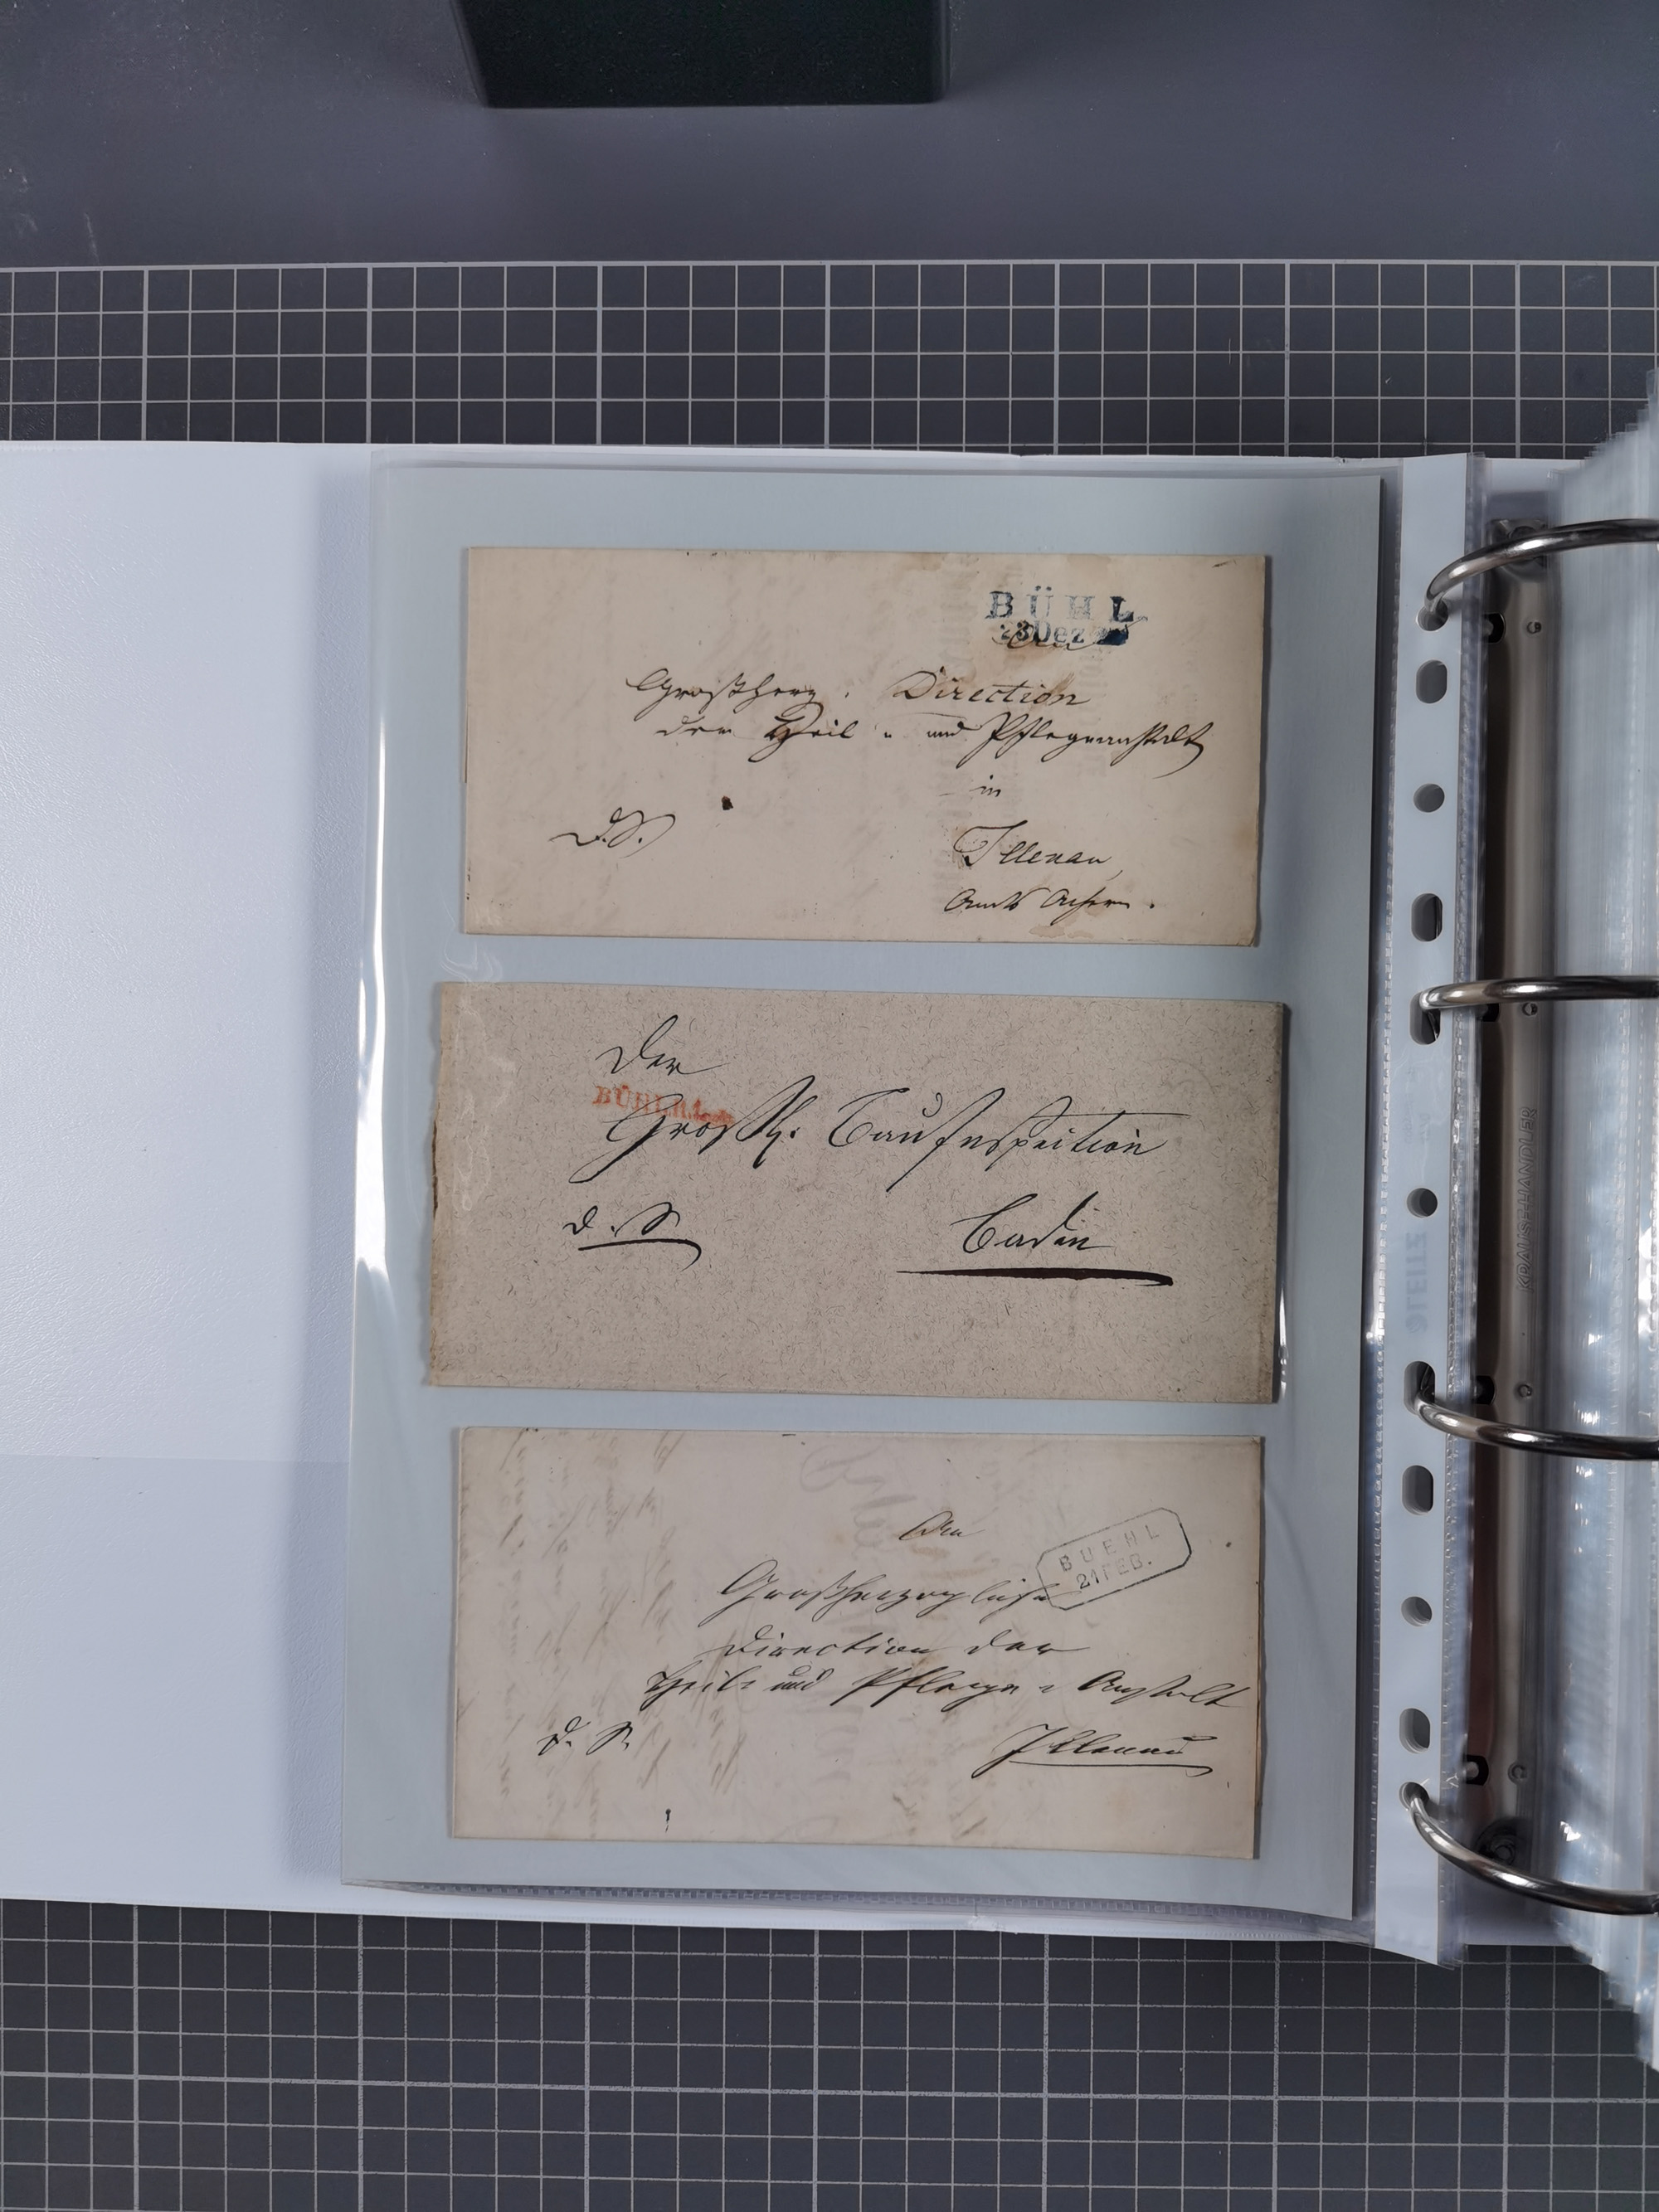 BÜHL
23 Dez
An
Großherz. Direction
der Heil- und Pflegeanstalt
in
D.S.
Illenau,
Amts Achern.
Der
BÜHL R.1
Großh. Bauinspection
D.S.
Baden
An
BUEHL
21 FEB.
Großherzogliche
Direction der
Heil- und Pflege-Anstalt
D. S.
Illenau
KRAUSHANDLER
LEITZ